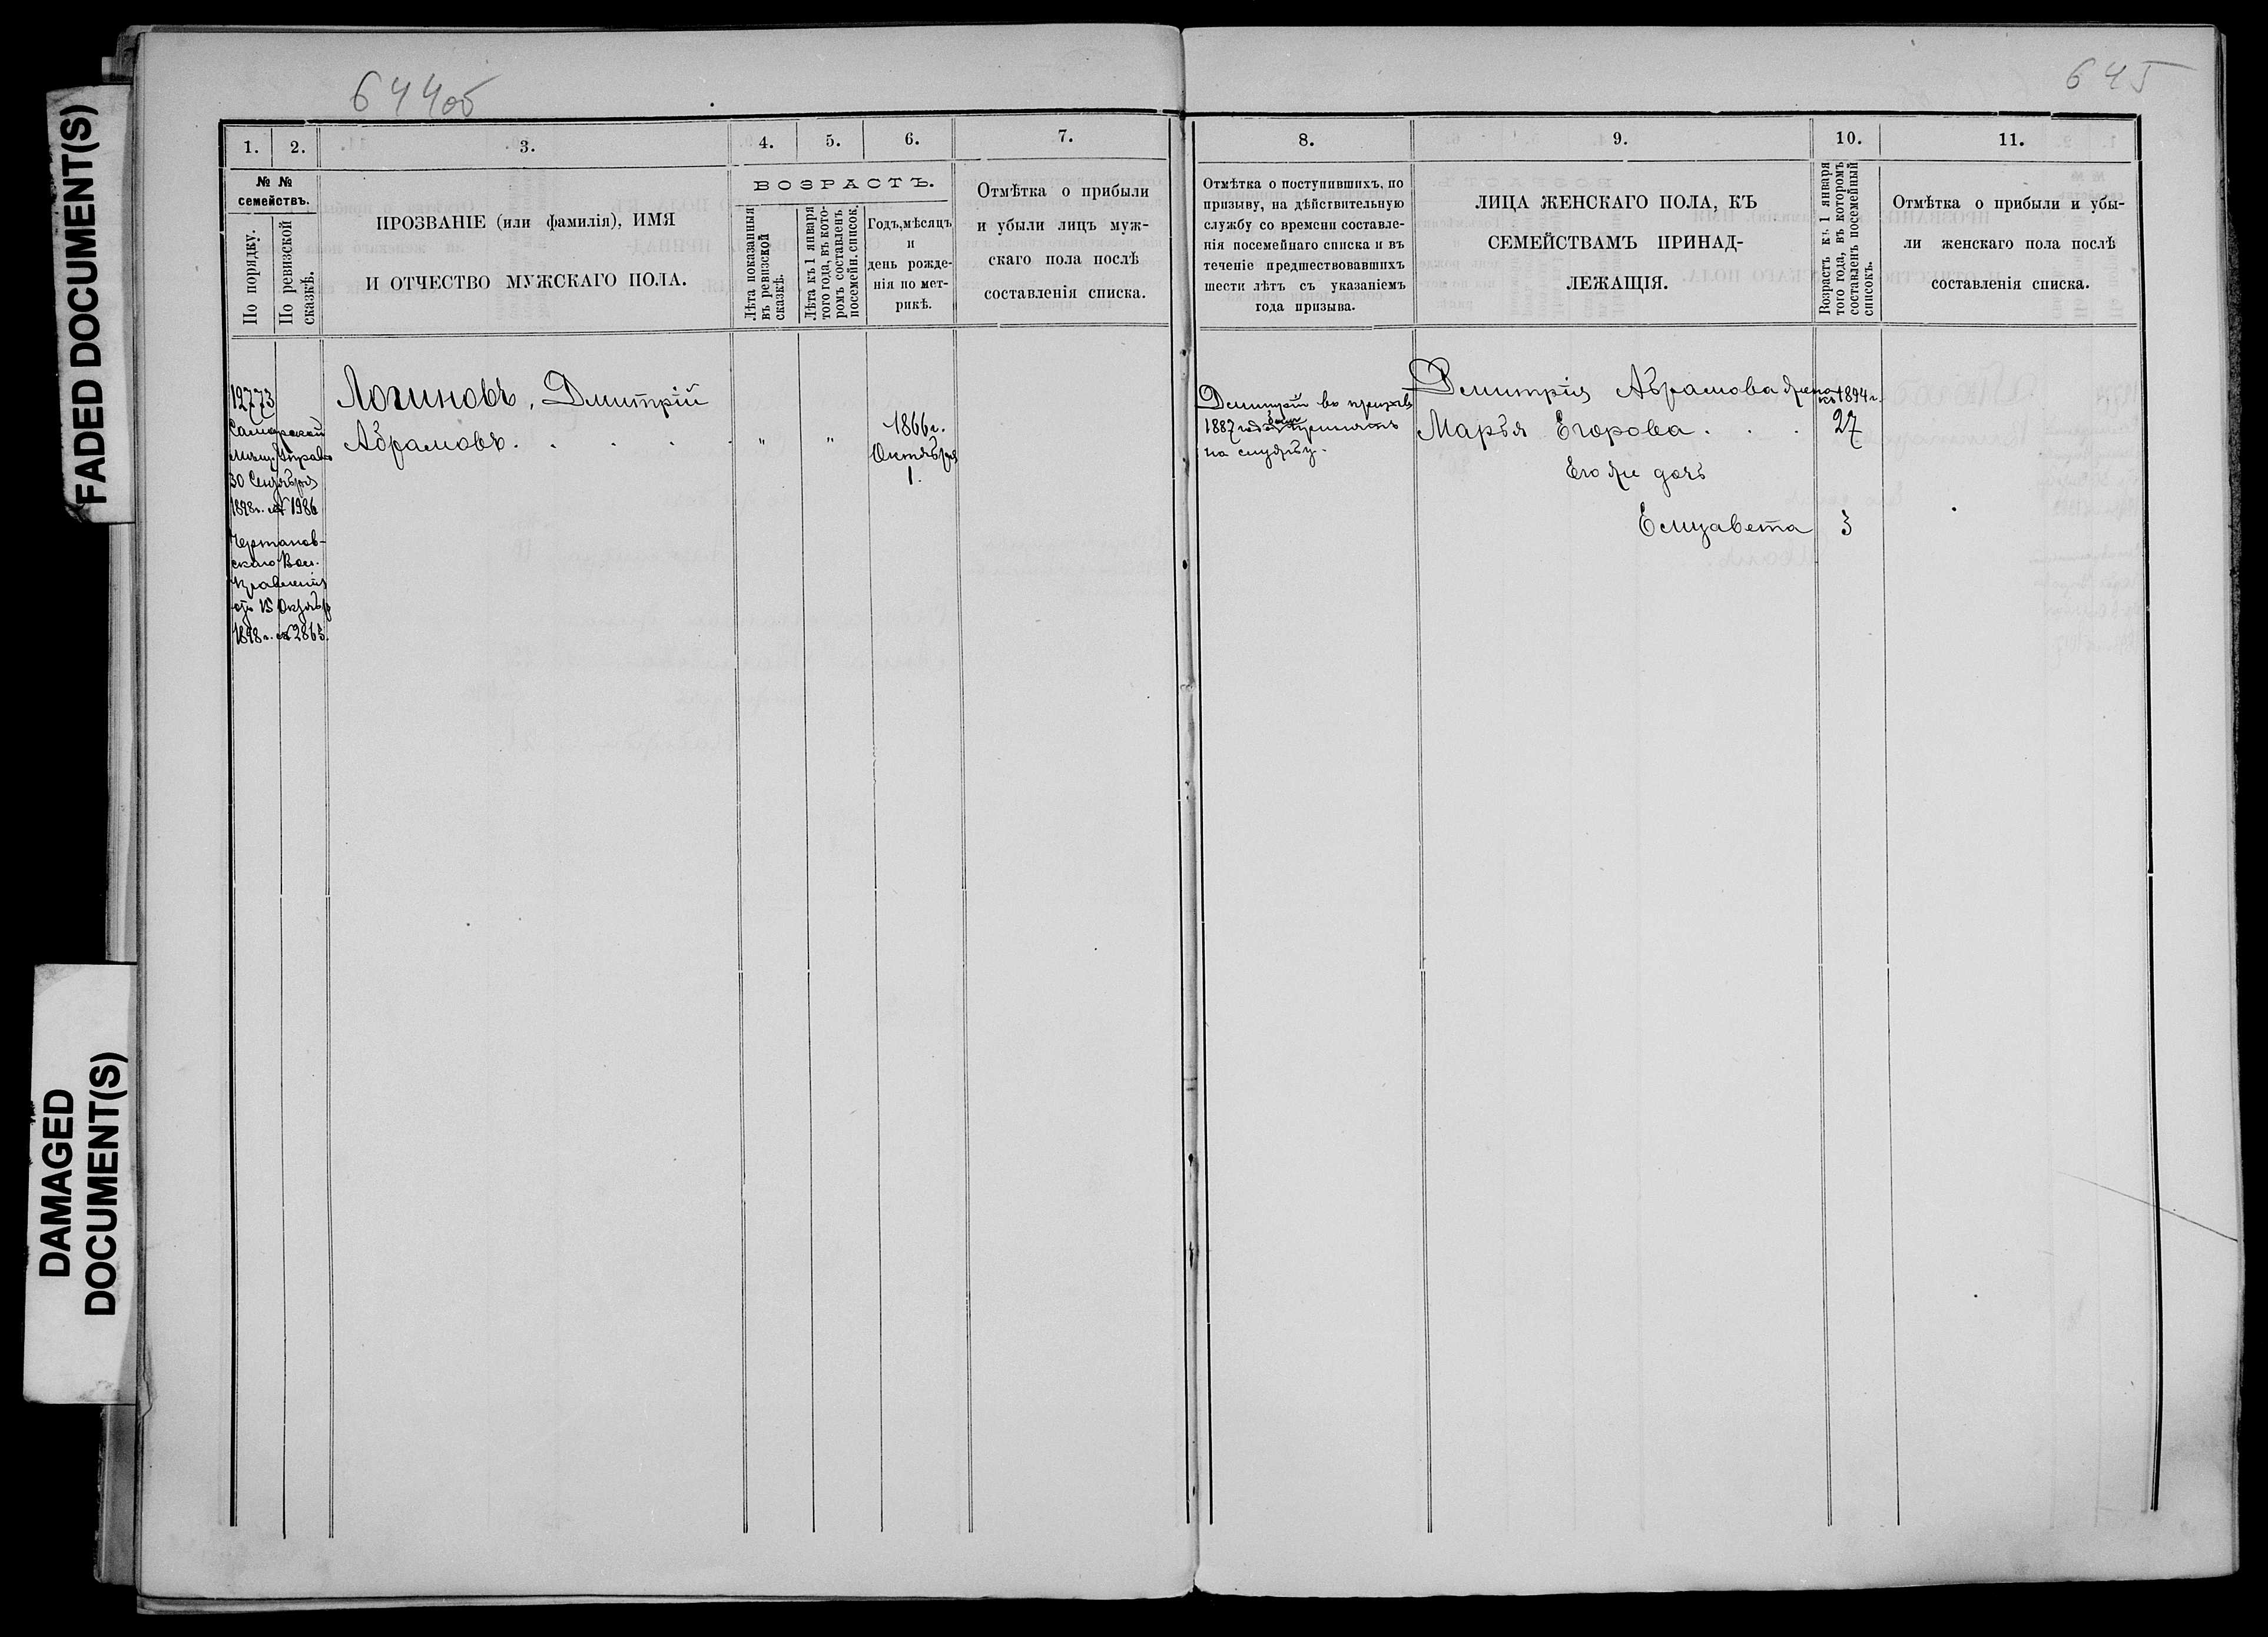 FADED DOCUMENT(S)
DAMAGED
DOCUMENT(S)
644об
1.
2.
3.
4.
5.
6.
7.
№ №
семействъ.
По порядку.
По ревизской
сказкѣ.
ПРОЗВАНІЕ (или фамилія), ИМЯ
И ОТЧЕСТВО МУЖСКАГО ПОЛА.
ВОЗРАСТЪ.
Лѣта показанныя
въ ревизской
сказкѣ.
Лѣта къ 1 января
того года, въ кото-
ромъ составленъ
посемейн. списокъ.
Годъ, мѣсяцъ
и
день рожде-
нія по мет-
рикѣ.
Отмѣтка о прибыли
и убыли лицъ муж-
скаго пола послѣ
составленія списка.
12773
Самарской
Мѣщ. Управы
30 Сентября
1898г. № 1986
Чертанов-
скаго Вол.
Правленія
15 Октября
1898г. № 2863.
Логиновъ, Дмитрій
Абрамовъ. . . . .
"
"
1866г.
Октября
1.
645
8.
9.
10.
11.
Отмѣтка о поступившихъ, по
призыву, на дѣйствительную
службу со времени составле-
нія посемейнаго списка и въ
теченіе предшествовавшихъ
шести лѣтъ съ указаніемъ
года призыва.
ЛИЦА ЖЕНСКАГО ПОЛА, КЪ
СЕМЕЙСТВАМЪ ПРИНАД-
ЛЕЖАЩІЯ.
Возрастъ къ 1 января
того года, въ которомъ
составленъ посемейный
списокъ.
Отмѣтка о прибыли и убы-
ли женскаго пола послѣ
составленія списка.
Дмитрій въ призывъ
1887 принятъ
на службу.
Дмитрія Абрамова жена
Марья Егорова . . .
Его же дочь
Елизавета
къ 1894г.
27
3